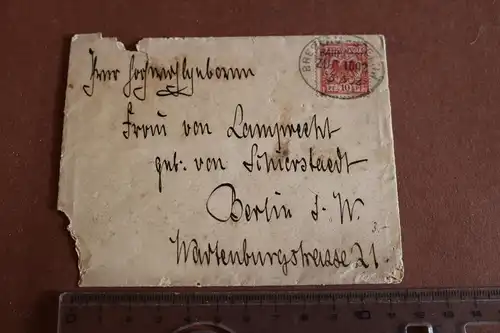 Ihrer Hochwohlgeboren
Frau von Lamprecht
geb. von Schierstaedt
Berlin S. W.
Wartenburgstrasse 21.